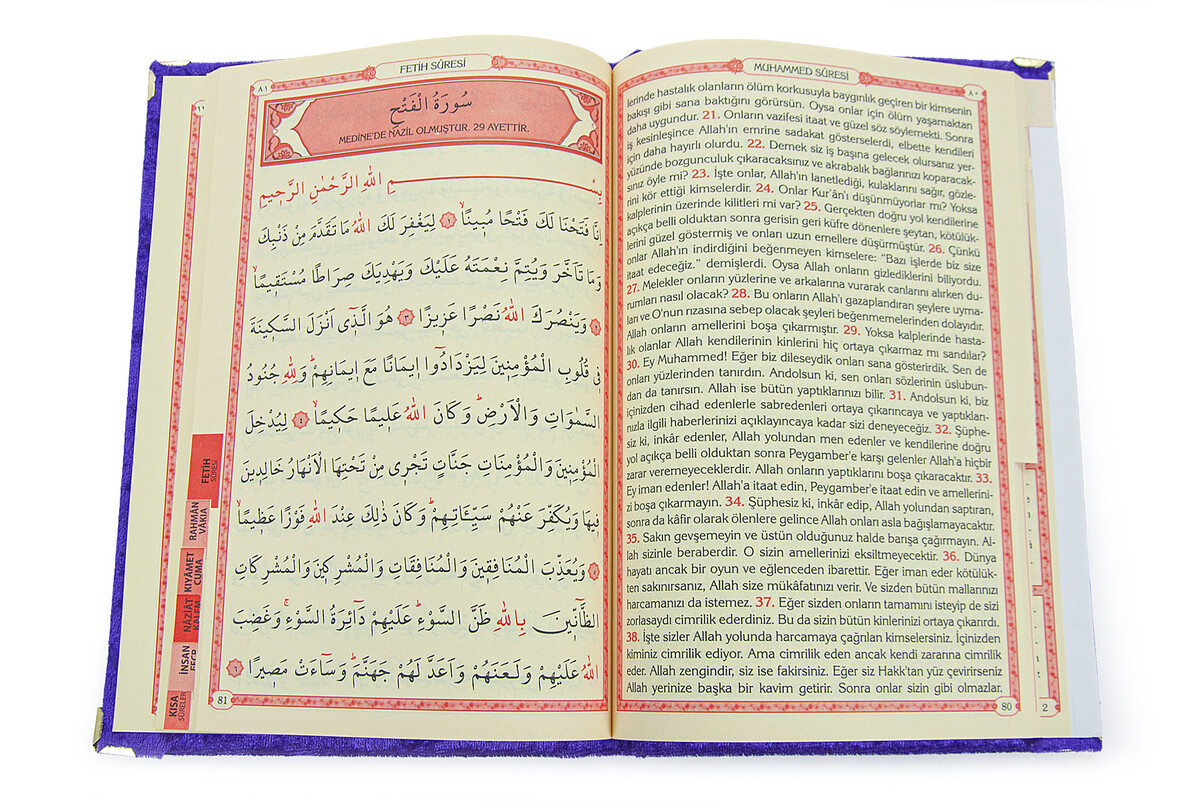 MUHAMMED SÛRESİ
٨٠
lerinde hastalık olanların ölüm korkusuyla baygınlık geçiren bir kimsenin
bakışı gibi sana baktığını görürsün. Oysa onlar için ölüm yaşamaktan
daha uygundur. 21. Onların vazifesi itaat ve güzel söz söylemekti. Sonra
iş kesinleşince Allah'ın emrine sadakat gösterselerdi, elbette kendileri
için daha hayırlı olurdu. 22. Demek siz iş başına gelecek olursanız yer-
yüzünde bozgunculuk çıkaracaksınız ve akrabalık bağlarınızı koparacak-
sınız öyle mi? 23. İşte onlar, Allah'ın lanetlediği, kulaklarını sağır, gözle-
rini kör ettiği kimselerdir. 24. Onlar Kur'ân'ı düşünmüyorlar mı? Yoksa
kalplerinin üzerinde kilitleri mi var? 25. Gerçekten doğru yol kendilerine
açıkça belli olduktan sonra gerisin geri küfre dönenlere şeytan, kötülük-
lerini güzel göstermiş ve onları uzun emellere düşürmüştür. 26. Çünkü
onlar Allah'ın indirdiğini beğenmeyen kimselere: "Bazı işlerde biz size
itaat edeceğiz." demişlerdi. Oysa Allah onların gizlediklerini biliyordu.
27. Melekler onların yüzlerine ve arkalarına vurarak canlarını alırken du-
rumları nasıl olacak? 28. Bu onların Allah'ı gazaplandıran şeylere uyma-
ları ve O'nun rızasına sebep olacak şeyleri beğenmemelerinden dolayıdır.
Allah onların amellerini boşa çıkarmıştır. 29. Yoksa kalplerinde hasta-
lık olanlar Allah kendilerinin kinlerini hiç ortaya çıkarmaz mı sandılar?
30. Ey Muhammed! Eğer biz dileseydik onları sana gösterirdik. Sen de
onları yüzlerinden tanırdın. Andolsun ki, sen onları sözlerinin üslubun-
dan da tanırsın. Allah ise bütün yaptıklarınızı bilir. 31. Andolsun ki, biz
içinizden cihad edenlerle sabredenleri ortaya çıkarıncaya ve yaptıkları-
nızla ilgili haberlerinizi açıklayıncaya kadar sizi deneyeceğiz. 32. Şüphe-
siz ki, inkâr edenler, Allah yolundan men edenler ve kendilerine doğru
yol açıkça belli olduktan sonra Peygamber'e karşı gelenler Allah'a hiçbir
zarar veremeyeceklerdir. Allah onların yaptıklarını boşa çıkaracaktır. 33.
Ey iman edenler! Allah'a itaat edin, Peygamber'e itaat edin ve amellerini-
zi boşa çıkarmayın. 34. Şüphesiz ki, inkâr edip, Allah yolundan saptıran,
sonra da kâfir olarak ölenlere gelince Allah onları asla bağışlamayacaktır.
35. Sakın gevşemeyin ve üstün olduğunuz halde barışa çağırmayın. Al-
lah sizinle beraberdir. O sizin amellerinizi eksiltmeyecektir. 36. Dünya
hayatı ancak bir oyun ve eğlenceden ibarettir. Eğer iman eder kötülük-
ten sakınırsanız, Allah size mükâfatınızı verir. Ve sizden bütün mallarınızı
harcamanızı da istemez. 37. Eğer sizden onların tamamını isteyip de sizi
zorlasaydı cimrilik ederdiniz. Bu da sizin bütün kinlerinizi ortaya çıkarırdı.
38. İşte sizler Allah yolunda harcamaya çağrılan kimselersiniz. İçinizden
kiminiz cimrilik ediyor. Ama cimrilik eden ancak kendi zararına cimrilik
eder. Allah zengindir, siz ise fakirsiniz. Eğer siz Hakk'tan yüz çevirirseniz
Allah yerinize başka bir kavim getirir. Sonra onlar sizin gibi olmazlar.
80
2
FETİH SÛRESİ
٨١
سُورَةُ الْفَتْحِ
MEDİNE'DE NAZİL OLMUŞTUR. 29 AYETTİR.
بِسْمِ اللهِ الرَّحْمٰنِ الرَّحِيمِ
اِنَّا فَتَحْنَا لَكَ فَتْحًا مُبِينًاۙ ﴿١﴾ لِيَغْفِرَ لَكَ اللهُ مَا تَقَدَّمَ مِنْ ذَنْبِكَ
وَمَا تَاَخَّرَ وَيُتِمَّ نِعْمَتَهُ عَلَيْكَ وَيَهْدِيَكَ صِرَاطًا مُسْتَقِيمًاۙ
﴿٢﴾ وَيَنْصُرَكَ اللهُ نَصْرًا عَزِيزًا ﴿٣﴾ هُوَ الَّذِٓي اَنْزَلَ السَّكِينَةَ
فِي قُلُوبِ الْمُؤْمِنِينَ لِيَزْدَادُٓوا اِيمَانًا مَعَ اِيمَانِهِمْۜ وَلِلهِ جُنُودُ
السَّمٰوَاتِ وَالْاَرْضِۜ وَكَانَ اللهُ عَلِيمًا حَكِيمًاۙ ﴿٤﴾ لِيُدْخِلَ
الْمُؤْمِنِينَ وَالْمُؤْمِنَاتِ جَنَّاتٍ تَجْرِي مِنْ تَحْتِهَا الْاَنْهَارُ خَالِدِينَ
فِيهَا وَيُكَفِّرَ عَنْهُمْ سَيِّـَٔاتِهِمْۜ وَكَانَ ذٰلِكَ عِنْدَ اللهِ فَوْزًا عَظِيمًاۙ
﴿٥﴾ وَيُعَذِّبَ الْمُنَافِقِينَ وَالْمُنَافِقَاتِ وَالْمُشْرِكِينَ وَالْمُشْرِكَاتِ
الظَّٓانِّينَ بِاللهِ ظَنَّ السَّوْءِۜ عَلَيْهِمْ دَٓائِرَةُ السَّوْءِۚ وَغَضِبَ
اللهُ عَلَيْهِمْ وَلَعَنَهُمْ وَاَعَدَّ لَهُمْ جَهَنَّمَۜ وَسَٓاءَتْ مَصِيرًا ﴿٦﴾
81
FETİH
SÛRESİ
RAHMÂN
VÂKIA
KIYÂMET
CUMA
NÂZİÂT
İNSAN
KISA
SÛRELER